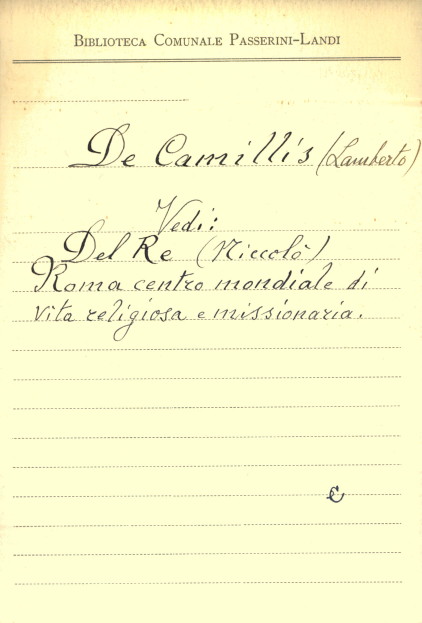 Biblioteca Comunale Passerini-Landi
De Camillis (Lamberto)
Vedi:
Del Re (Niccolò)
Roma centro mondiale di
vita religiosa e missionaria.